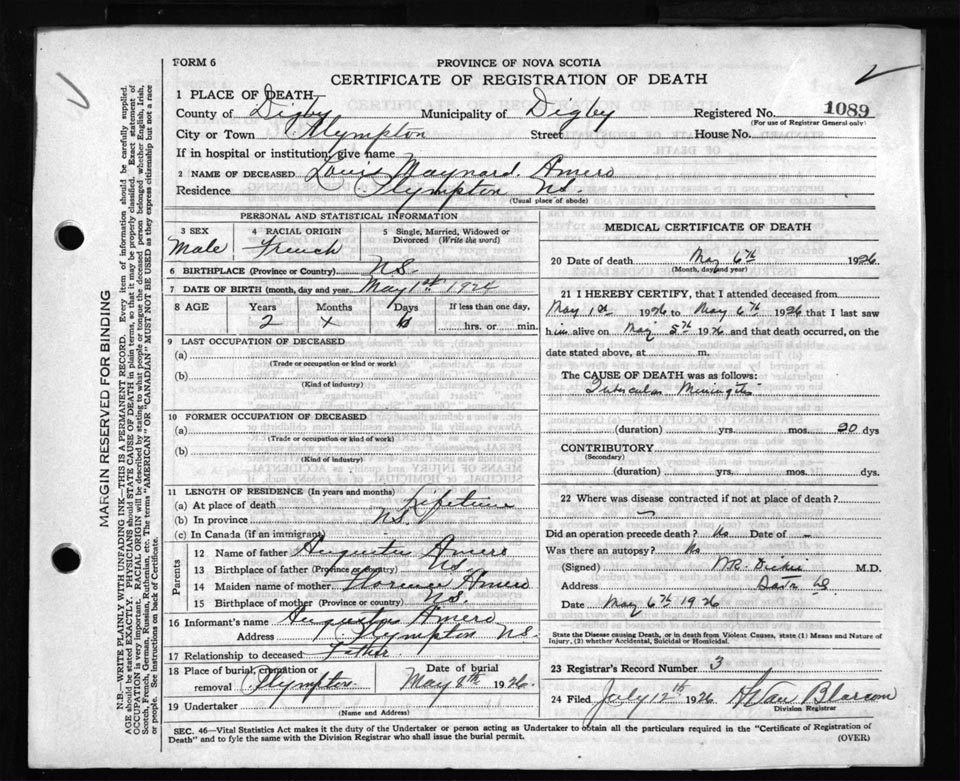 FORM 6
PROVINCE OF NOVA SCOTIA
CERTIFICATE OF REGISTRATION OF DEATH
1 PLACE OF DEATH
County of Digby Municipality of Digby Registered No. 1089
(For use of Registrar General only)
City or Town Plympton Street House No.
If in hospital or institution, give name
2 NAME OF DECEASED Louis Maynard Amero
Residence Plympton N.S.
(Usual place of abode)
PERSONAL AND STATISTICAL INFORMATION
3 SEX
Male
4 RACIAL ORIGIN
French
5 Single, Married, Widowed or
Divorced (Write the word)
6 BIRTHPLACE (Province or Country) N.S.
7 DATE OF BIRTH (month, day and year. May 1st 1924
8 AGE Years Months Days If less than one day,
2 x hrs. or min.
9 LAST OCCUPATION OF DECEASED
(a)
(Trade or occupation or kind or work)
(b)
(Kind of industry)
10 FORMER OCCUPATION OF DECEASED
(a)
(Trade or occupation or kind of work)
(b)
(Kind of industry)
11 LENGTH OF RESIDENCE (In years and months)
(a) At place of death Lifetime
(b) In province N.S.
(c) In Canada (if an immigrant)
Parents
12 Name of father Augustus Amero
13 Birthplace of father (Province or country) N.S.
14 Maiden name of mother Florence Amero
15 Birthplace of mother (Province or country) N.S.
16 Informant's name Augustus Amero
Address Plympton N.S.
17 Relationship to deceased Father
18 Place of burial, cremation or
removal Plympton
Date of burial
May 8th 1926.
19 Undertaker
(Name and Address)
MEDICAL CERTIFICATE OF DEATH
20 Date of death May 6th 1926
(Month, day and year)
21 I HEREBY CERTIFY, that I attended deceased from
May 1st 1926 to May 6th 1926 that I last saw
him alive on May 5th 1926 and that death occurred, on the
date stated above, at m.
The CAUSE OF DEATH was as follows:
Tubercular Meningitis
(duration) yrs. mos. 20 dys
CONTRIBUTORY
(Secondary)
(duration) yrs. mos. dys.
22 Where was disease contracted if not at place of death?
Did an operation precede death? No Date of –
Was there an autopsy? No
(Signed) W.R. Dickie M.D.
Address
Date May 6th 1926
State the Disease causing Death, or in death from Violent Causes, state (1) Means and Nature of
Injury, (2) whether Accidental, Suicidal or Homicidal.
23 Registrar's Record Number 3
24 Filed July 12th 1926 Van Blarcom
Division Registrar
SEC. 46—Vital Statistics Act makes it the duty of the Undertaker or person acting as Undertaker to obtain all the particulars required in the "Certificate of Registration of
Death" and to fyle the same with the Division Registrar who shall issue the burial permit. (OVER)
MARGIN RESERVED FOR BINDING
N.B.—WRITE PLAINLY WITH UNFADING INK—THIS IS A PERMANENT RECORD. Every item of information should be carefully supplied.
AGE should be stated EXACTLY. PHYSICIANS should STATE CAUSE OF DEATH in plain terms, so that it may be properly classified. Exact statement of
OCCUPATION is very important. RACIAL ORIGIN will be described by stating to what people or tongue the deceased person belonged whether English, Irish,
Scotch, French, German, Russian, Ruthenian, etc. The terms "AMERICAN" OR "CANADIAN" MUST NOT BE USED as they express citizenship but not a race
or people. See instructions on back of Certificate.